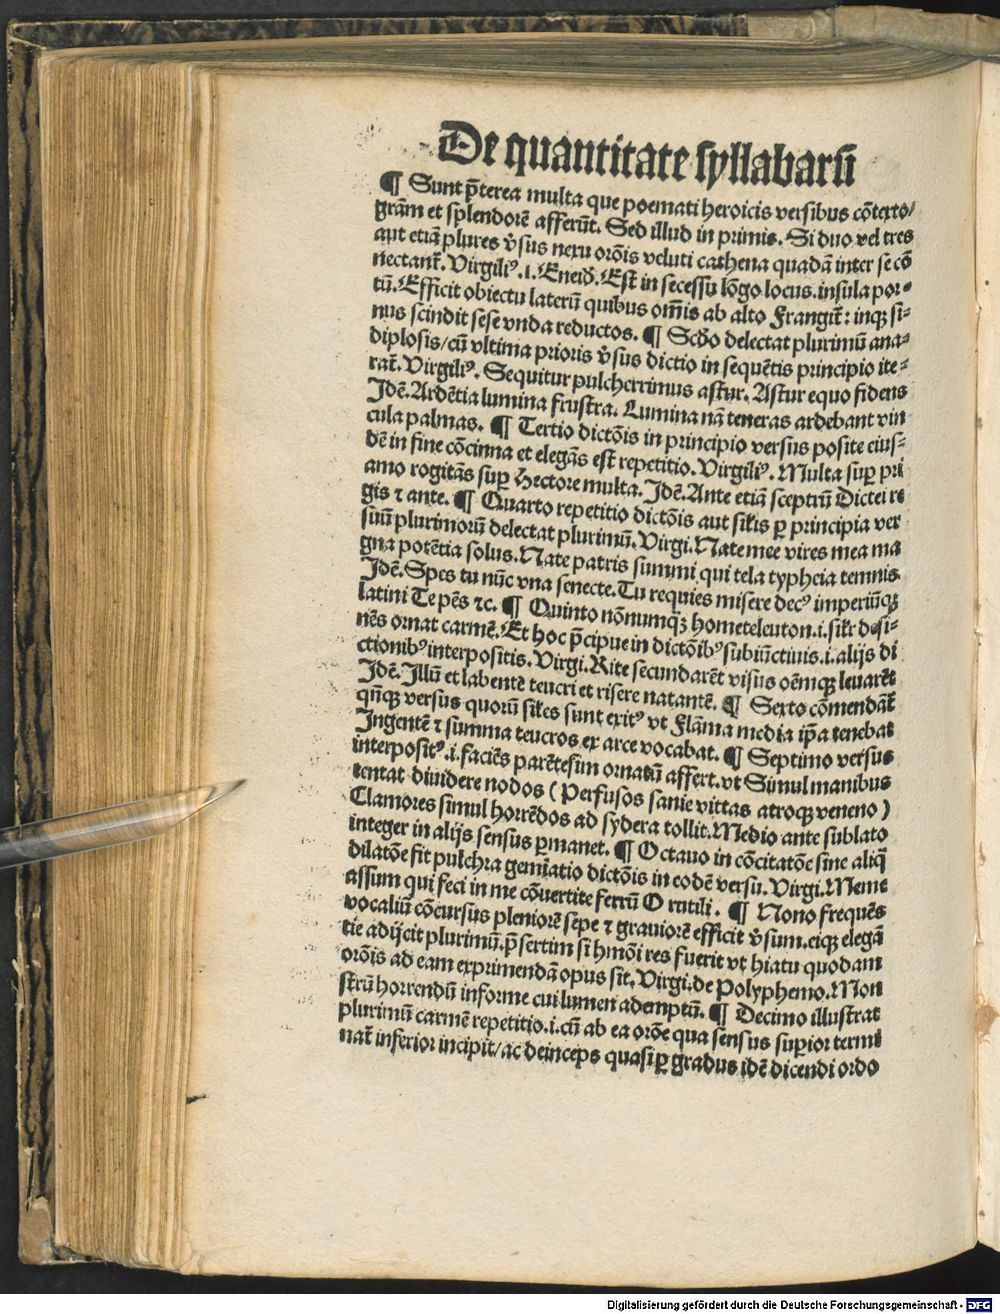 De quantitate syllabarū
¶ Sunt p̄terea multa que poemati heroicis versibus cōtexto/
grām et splendorē afferūt. Sed illud in primis. Si duo vel tres
aut etiā plures v̓sus nexu orōis veluti cathena quadā inter se cō
nectant᷑. Virgiliꝰ. i. Eneid̓. Est in secessu lōgo locus. insula por⸗
tū. Efficit obiectu laterū quibus om̄is ab alto Frangit᷑: inqꝫ si⸗
nus scindit sese vnda reductos. ¶ Scḋo delectat plurimū ana⸗
diplosis/cū vltima prioris v̓sus dictio in sequētis principio ite⸗
rat᷑. Virgiliꝰ. Sequitur pulcherrimus astur. Astur equo fidens
Idē. Ardētia lumina frustra. Lumina nā teneras ardebant vin
cula palmas. ¶ Tertio dictōis in principio versus posite eius⸗
dē in fine cōcinna et elegās est repetitio. Virgiliꝰ. Multa suꝑ pri
amo rogitās suꝑ Hectore multa. Idē. Ante etiā sceptrū Dictei re
gis ⁊ ante. ¶ Quarto repetitio dictōis aut sil̓is ꝑ principia ver
suū plurimorū delectat plurimū. Virgi. Nate mee vires mea ma
gna potētia solus. Nate patris summi qui tela typheia temnis
Idē. Spes tu nūc vna senecte. Tu requies misere decꝰ imperiūqꝫ
latini Te pēs ⁊c. ¶ Quinto nōnumqꝫ hometeleuton. i. sil̓r desi⸗
nēs ornat carmē. Et hoc p̄cipue in dictōibꝰ subiūctiuis. i. alijs di
ctionibꝰ interpositis. Virgi. Rite secundarēt visus oēmqꝫ leuarēt
Idē. Illū et labentē teucri et risere natantē. ¶ Sexto cōmendāt᷑
qn̄qꝫ versus quorū sil̓es sunt exitꝰ vt Flāma media ip̄a tenebat
Ingentē ⁊ summa teucros ex arce vocabat. ¶ Septimo versus
interpositꝰ. i. faciēs parētesim ornatū affert. vt Simul manibus
tentat diuidere nodos (Perfusos sanie vittas atroqꝫ veneno)
Clamores simul horrēdos ad sydera tollit. Medio ante sublato
integer in alijs sensus ꝑmanet. ¶ Octauo in cōcitatōe sine aliq̄
dilatōe fit pulchra gemīatio dictōis in eodē versu. Virgi. Meme
assum qui feci in me cōuertite ferrū O rutili. ¶ Nono frequēs
vocaliū cōcursus pleniorē sepe ⁊ grauiorē efficit v̓sum. eiqꝫ elegā
tie adijcit plurimū. p̄sertim si hm̄oi res fuerit vt hiatu quodam
orōis ad eam exprimendā opus sit. Virgi. de Polyphemo. Mon
strū horrendū informe cui lumen ademptū. ¶ Decimo illustrat
plurimū carmē repetitio. i. cū ab ea orōe qua sensus suꝑior termi
nat᷑ inferior incipit/ac deinceps quasi ꝑ gradus idē dicendi ordo
Digitalisierung gefördert durch die Deutsche Forschungsgemeinschaft - DFG